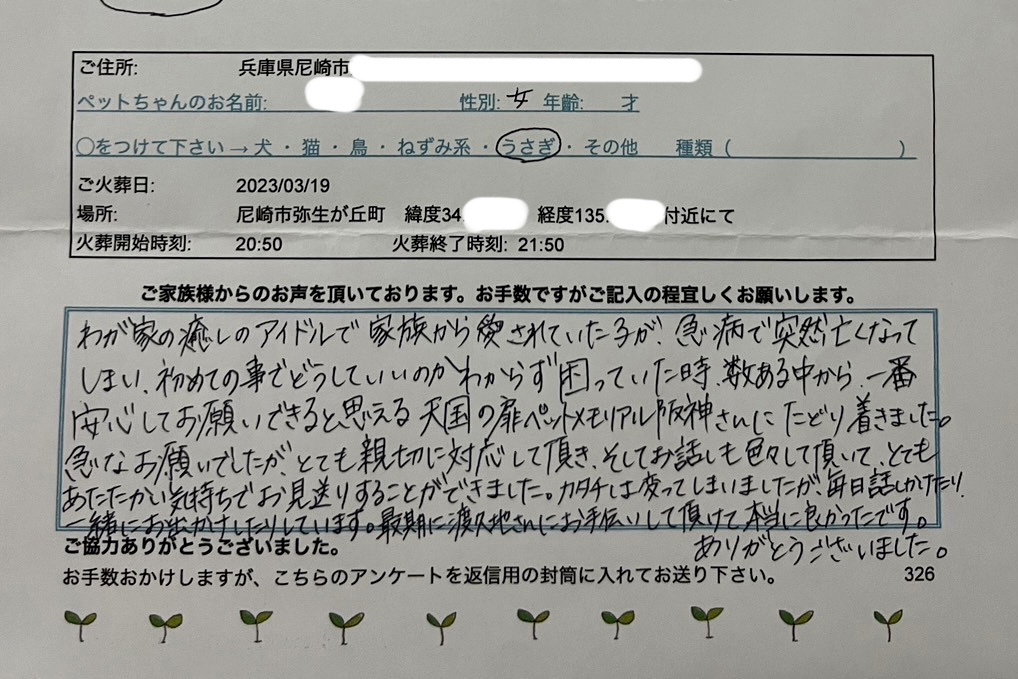 ご住所: 兵庫県尼崎市
ペットちゃんのお名前: 性別: 女 年齢: 才
○をつけて下さい → 犬 ・ 猫 ・ 鳥 ・ ねずみ系 ・ うさぎ ・ その他 種類 ( )
ご火葬日: 2023/03/19
場所: 尼崎市弥生が丘町 緯度34. 経度135. 付近にて
火葬開始時刻: 20:50 火葬終了時刻: 21:50
ご家族様からのお声を頂いております。お手数ですがご記入の程宜しくお願いします。
わが家の癒しのアイドルで家族から愛されていた子が、急病で突然亡くなって
しまい、初めての事でどうしていいのかわからず困っていた時、数ある中から、一番
安心してお願いできると思える天国の扉ペットメモリアル阪神さんにたどり着きました。
急なお願いでしたが、とても親切に対応して頂き、そしてお話しも色々して頂いて、とても
あたたかい気持ちでお見送りすることができました。カタチは変ってしまいましたが、毎日話しかけたり、
一緒にお出かけしたりしています。最期に渡久地さんにお手伝いして頂けて本当に良かったです。
ありがとうございました。
ご協力ありがとうございました。
お手数おかけしますが、こちらのアンケートを返信用の封筒に入れてお送り下さい。 326